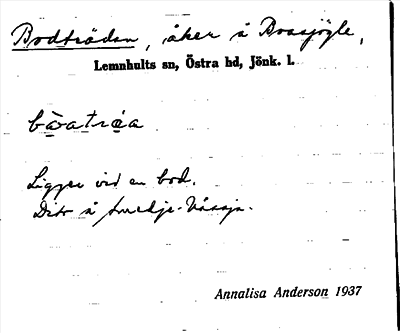 Bodträdan, åker å Brasjögle,
Lemnhults sn, Östra hd, Jönk. l.
bòatrǽa
Ligger vid en bod.
Dito å Smedje-Våssja.
Annalisa Anderson 1937